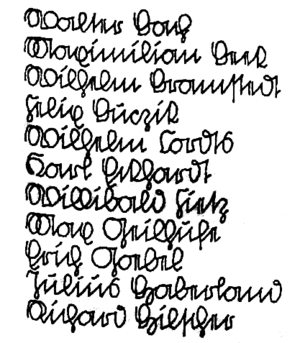 Walter
Maximilian Beck
Wilhelm Bramstedt
Felix Buczik
Wilhelm Cordts
Karl Eckhardt
Willibald Fietz
Max Geilhufe
Erich Goebel
Julius Haberland
Richard Hilscher